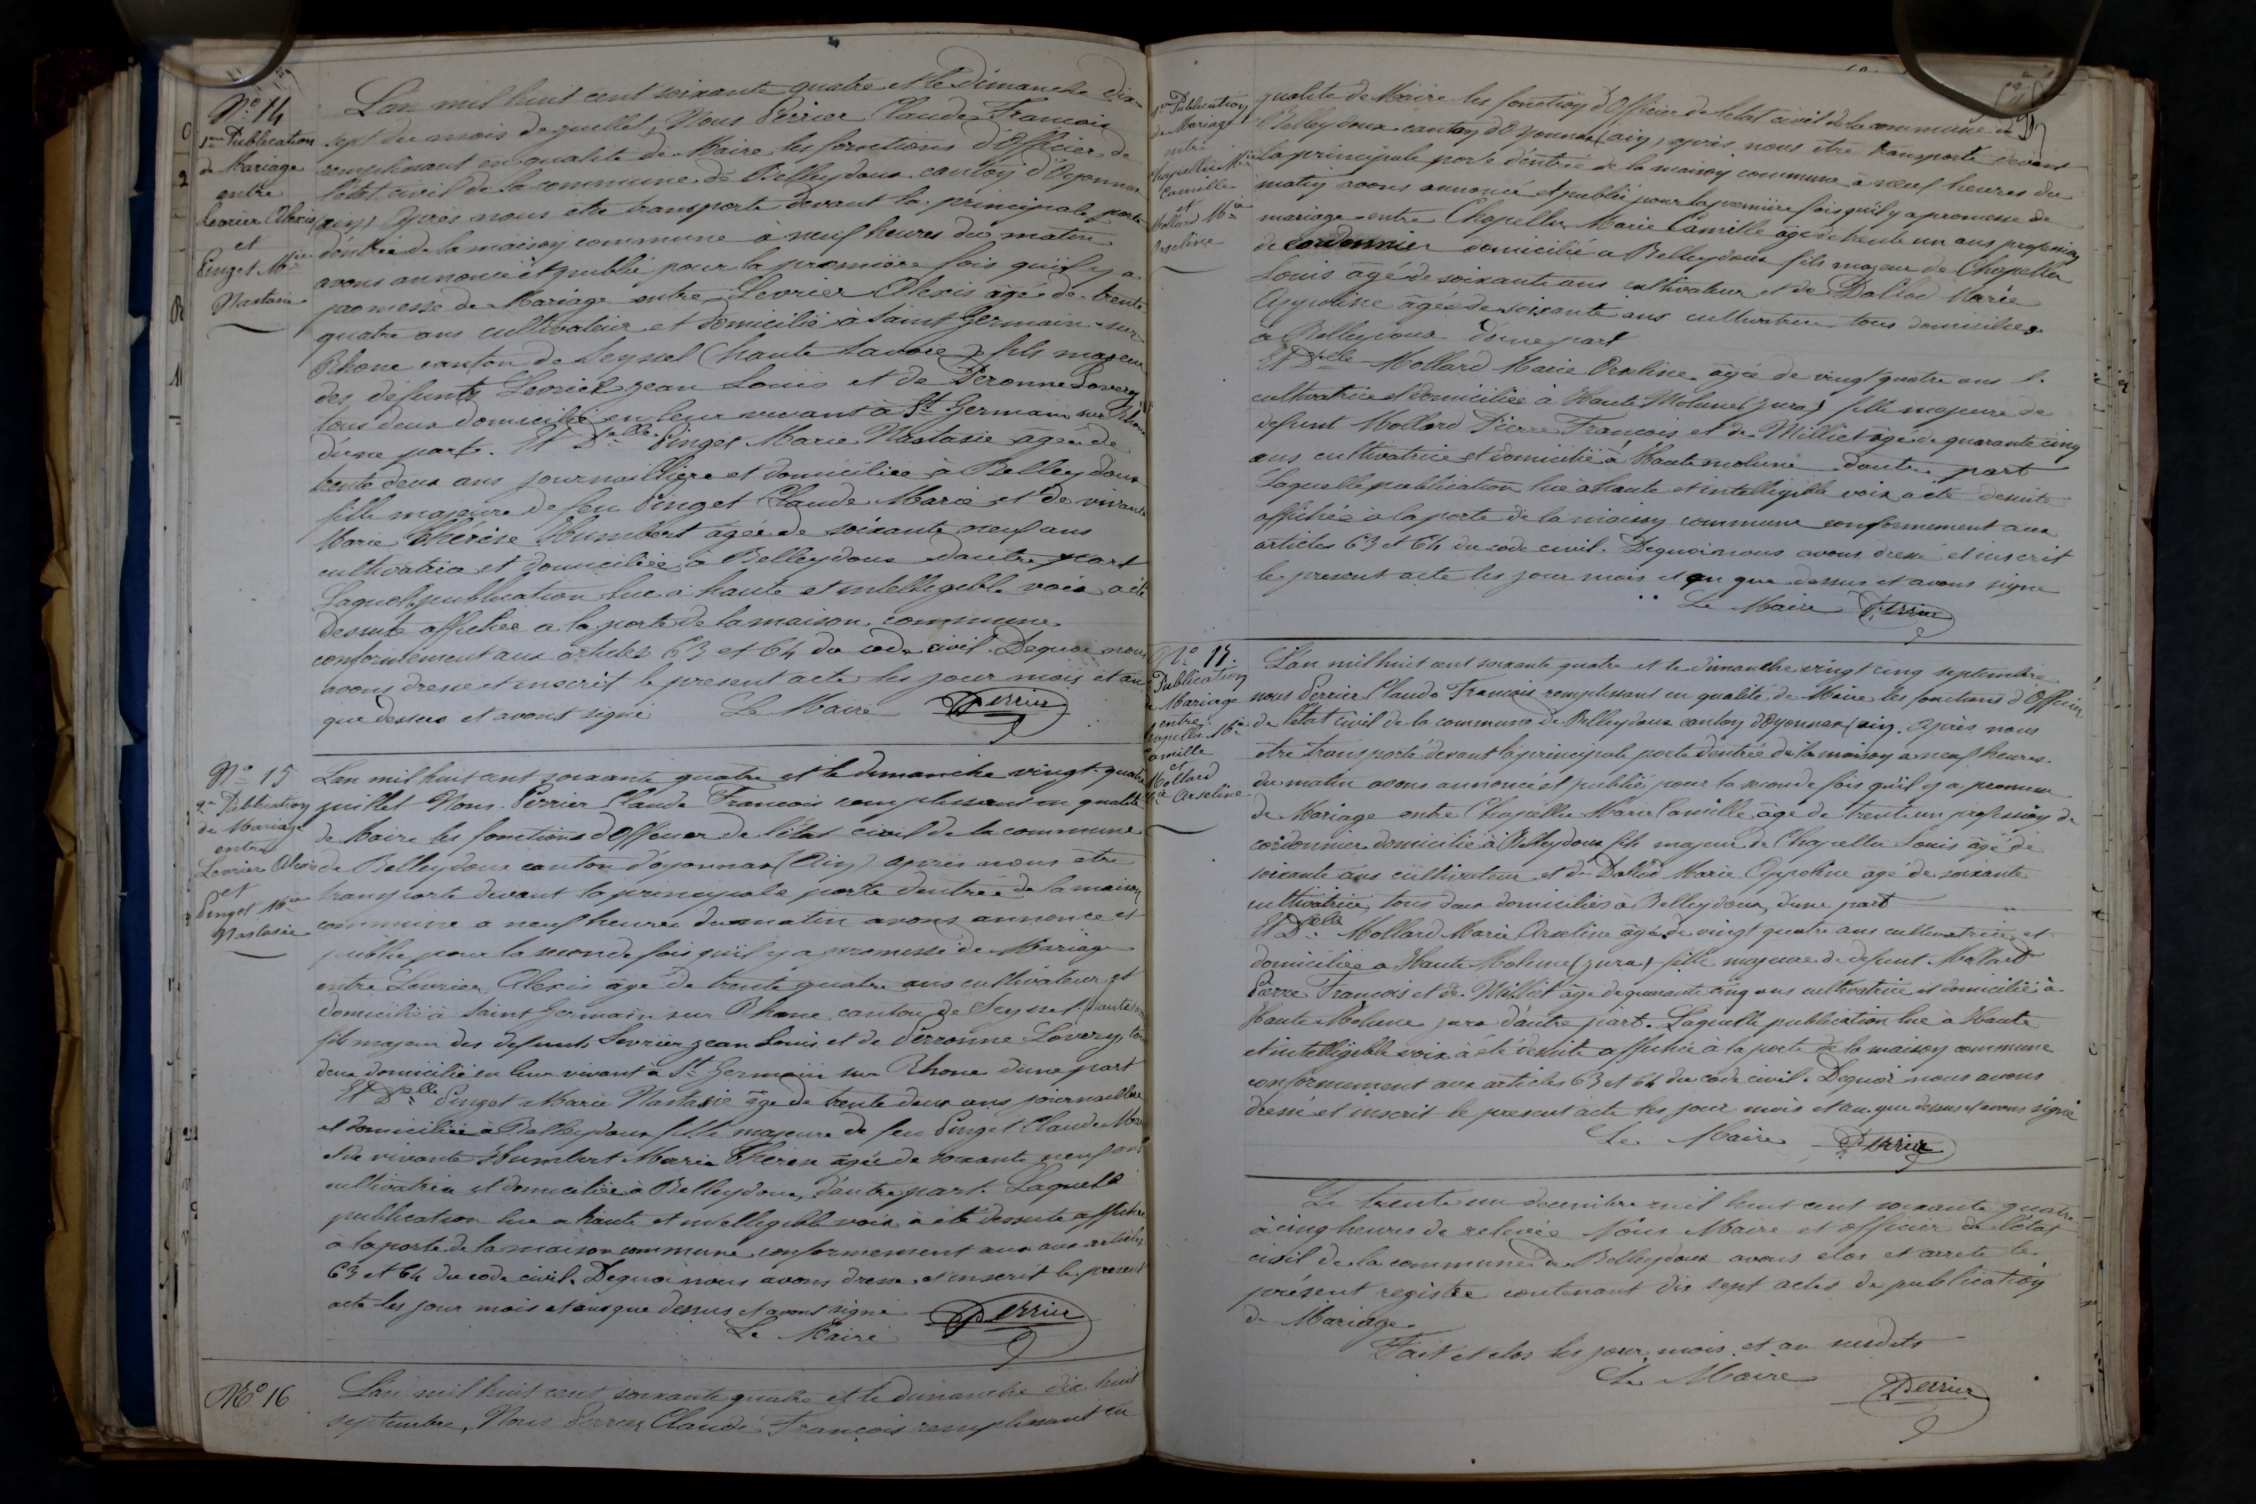 N° 14
1ère Publication
de Mariage
entre
Levrier Alexis
et
Pinget Mie
Nastasie
L'an mil huit cent soixante quatre et le Dimanche dix
sept du mois de juillet, Nous Perrier Claude Francois
remplissant en qualité de Maire les fonctions d'Officier de
l'état civil de la commune de Belleydoux canton d'Oyonnax
(ain) après nous être transporté devant la principale porte
d'entrée de la maison commune à neuf heures du matin
avons annoncé et publié pour la première fois qu'il y a
promesse de Mariage entre Levrier Alexis âgé de trente
quatre ans cultivateur et domicilié à Saint Germain sur
Rhone canton de Seyssel (haute Savoie) fils majeur
des défunts Levrier jean Louis et de Peronne Lovery
tous deux domicilié en leur vivant à St Germain sur Rhone
d'une part. Et Dselle Pinget Marie Nastasie âgée de
trente deux ans journaillière et domiciliée à Belleydoux
fille majeure de feu Pinget Claude Marie et de vivante
Marie Thérèse Humbert âgée de soixante neuf ans
cultivatrice et domiciliée à Belleydoux d'autre part
Laquelle publication lue à haute et intelligible voix a été
desuite affichée a la porte de la maison commune
conformement aux articles 63 et 64 du code civil. Dequoi nous
avons dressé et inscrit le present acte les jour mois et an
que dessus et avons signé Le Maire Perrier
N° 15
2e Publication
de Mariage
entre
Levrier Alexis
et
Pinget Mie
Nastasie
L'an mil huit cent soixante quatre et le dimanche vingt quatre
juillet Nous Perrier Claude Francois remplissant en qualité
de Maire les fonctions d'Officier de l'état civil de la commune
de Belleydoux canton d'oyonnax (Ain) après nous être
transporté devant la principale porte d'entrée de la maison
commune a neuf heures du matin avons annoncé et
publié pour la seconde fois qu'il y a promesse de Mariage
entre Levrier Alexis âgé de trente quatre ans cultivateur et
domicilié à Saint Germain sur Rhone canton de Seyssel haute
fils majeur des defunts Levrier jean Louis et de Perronne Lovery
deux domicilié en leur vivant à St Germain sur Rhone d'une part
Et Dselle Pinget Marie Nastasie âgé de trente deux ans journaillière
et domiciliée à Belleydoux fille majeure de feu Pinget Claude Marie
et de vivante Humbert Marie Therese âgée de soixante neuf ans
cultivatrice et domiciliée à Belleydoux, d'autre part. Laquelle
publication lue a haute et intellegible voix à été desuite affichée
a la porte de la maison commune conformement aux aux articles
63 et 64 du code civil. Dequoi nous avons dressé et inscrit le present
acte les jour mois et ans que dessus et avons signé
Le Maire Perrier
N° 16
L'an mil huit cent soixante quatre et le dimanche dix huit
septembre, Nous Perrier Claude François remplissant en
1ère Publication
de Mariage
entre
Chapellu Mie
Camille
et
Mollard Mie
Arseline
qualité de Maire les fonctions d'Officier de l'état civil de la commune de
Belleydoux canton d'Oyonnax (ain) après nous être transporté devant
la principale porte d'entrée de la maison commune à neuf heures du
matin avons annoncé et publié pour la première fois qu'il y a promesse de
mariage entre Chapellu Marie Camille âgé de trente un ans profession
de cordonnier domicilié a Belleydoux fils majeur de Chapellu
Louis âgé de soixante ans cultivateur et de Dallod Marie
Appoline âgée de soixante ans cultivatrice tous domiciliés
à Belleydoux d'une part
Et Dselle Mollard Marie Arseline âgée de vingt quatre ans
cultivatrice et domiciliée à Haute Molune (jura) fille majeure de
defunt Mollard Pierre François et de Milliet âgé de quarante cinq
ans cultivatrice et domicilié à Haute molune d'autre part
Laquelle publication lue à haute et intelligible voix a été desuite
affichée à la porte de la maison commune conformement aux
articles 63 et 64 du code civil. Dequoi nous avons dressé et inscrit
le present acte les jour mois et an que dessus et avons signé
Le Maire Perrier
N° 17.
Publication
de Mariage
entre
Chapellu Mie
Camille
et
Mollard
Mie Arseline
L'an mil huit cent soixante quatre et le dimanche vingt cinq septembre
nous Perrier Claude Francois remplissant en qualité de Maire les fonctions d'Officier
de l'état civil de la commune de Belleydoux canton d'Oyonnax (ain. après nous
être transporté devant la principale porte d'entrée de la maison a neuf heures
du matin avons annoncé et publié pour la seconde fois qu'il y a promesse
de Mariage entre Chapellu Marie Camille âgé de trente un profession de
cordonnier domicilié à Belleydoux fils majeur de Chapellu Louis âgé de
soixante ans cultivateur et de Dallod Marie Appoline âgé de soixante
cultivatrice, tous deux domiciliés à Belleydoux, d'une part
Et Dselle Mollard Marie Arseline âgé de vingt quatre ans cultivatrice et
domiciliée a Haute Molune (jura) fille majeure de defunt Mollard
Pierre François et de Milliet âgé de quarante cinq ans cultivatrice et domicilié à
Haute Molune jura d'autre part. Laquelle publication lue à Haute
et intelligible voix à été desuite affichée à la porte de la maison commune
conformement aux articles 63 et 64 du code civil. Dequoi nous avons
dressé et inscrit le present acte les jour mois et an que dessus et avons signé
Le Maire Perrier
Le trente un decembre mil huit cent soixante quatre
à cinq heures de relevée Nous Maire et officier de l'état
civil de la commune de Belleydoux avons clos et arreté le
présent registre contenant dix sept actes de publication
de Mariage
Fait et clos les jour, mois et an susdits
Le Maire
Perrier